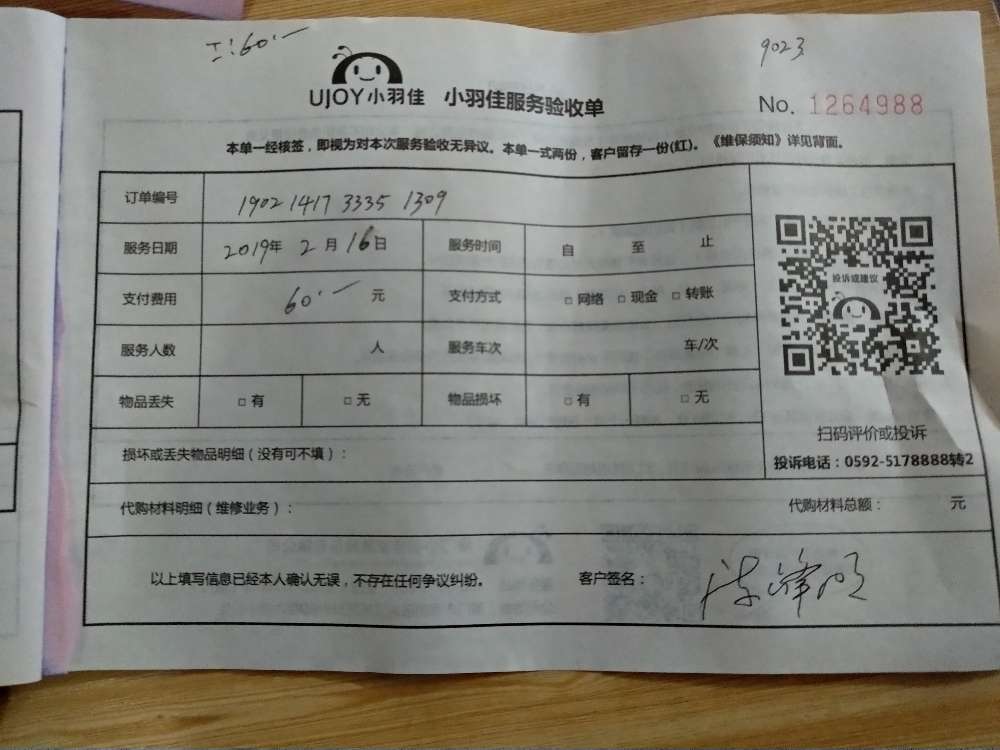 工:60.一
9023
UJOY小羽佳 小羽佳服务验收单
No. 1264988
本单一经核签，即视为对本次服务验收无异议。本单一式两份，客户留存一份(红)。《维保须知》详见背面。
订单编号 1902 1417 3335 1309
服务日期 2019年 2月16日 服务时间 自 至 止
支付费用 60.一 元 支付方式 □ 网络 □ 现金 □ 转账
服务人数 人 服务车次 车/次
物品丢失 □ 有 □ 无 物品损坏 □ 有 □ 无
投诉或建议
扫码评价或投诉
投诉电话：0592-5178888转2
损坏或丢失物品明细（没有可不填）：
代购材料明细（维修业务）： 代购材料总额： 元
以上填写信息已经本人确认无误，不存在任何争议纠纷。 客户签名：